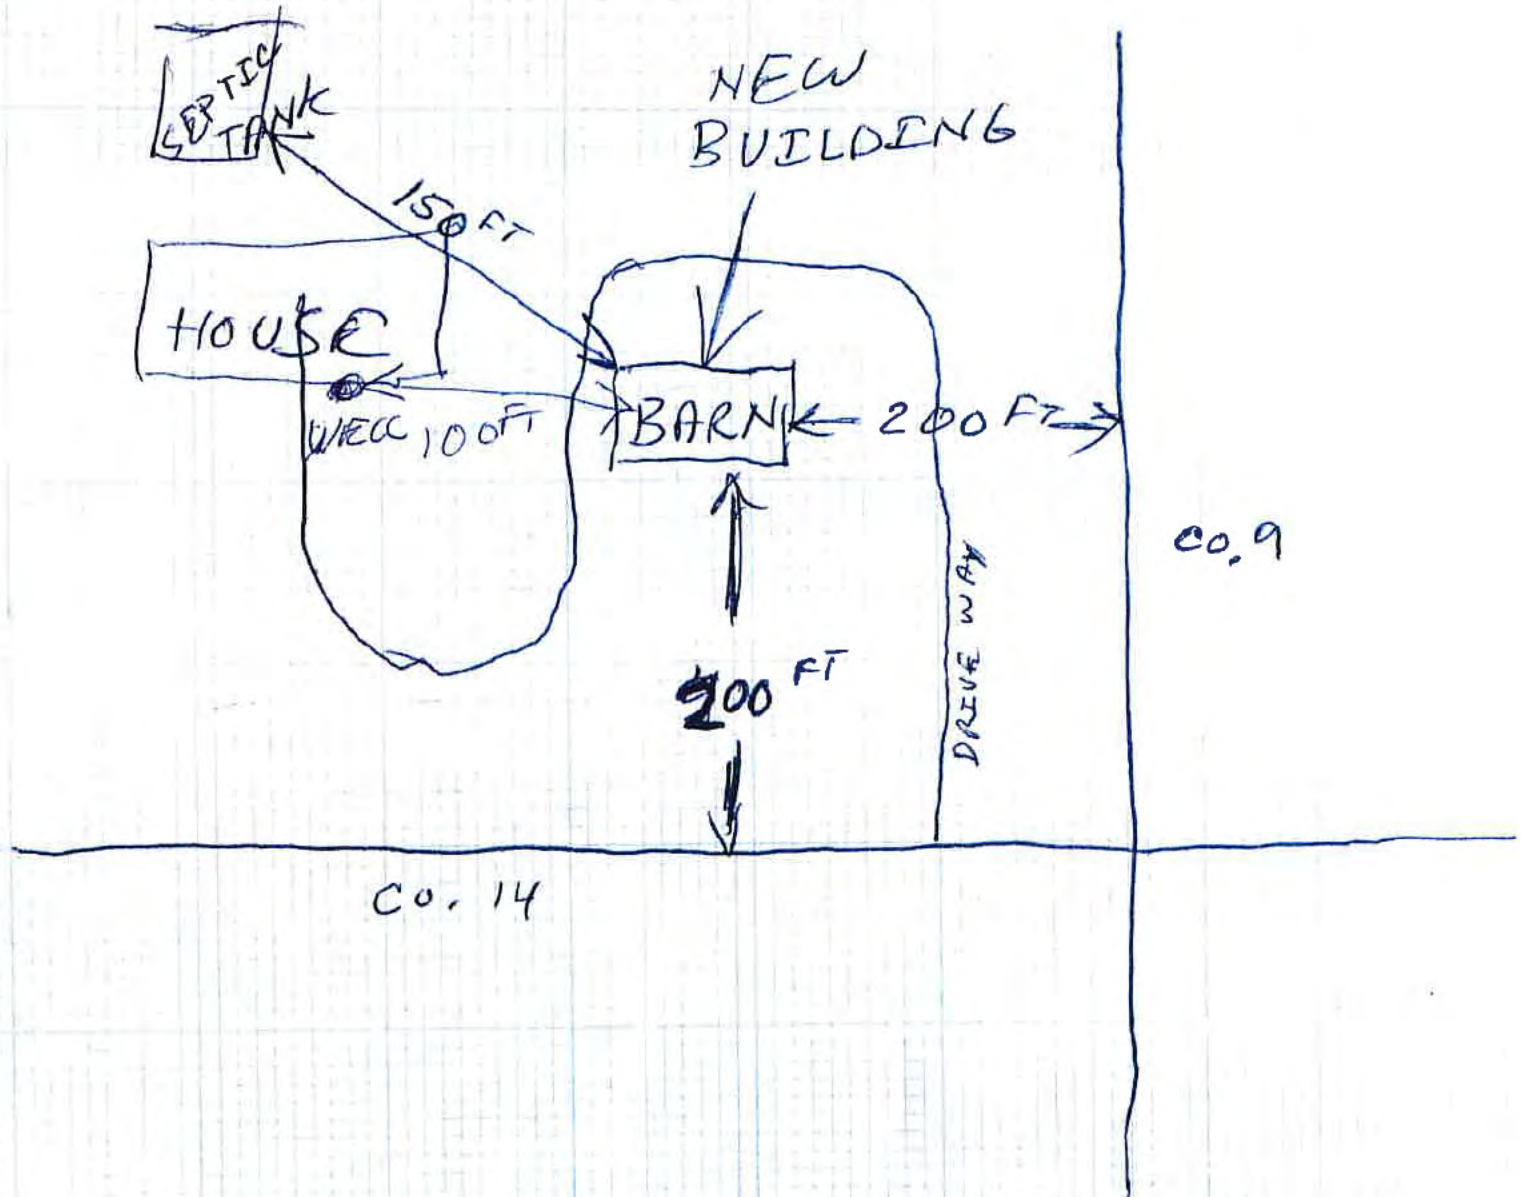 SEPTIC
TANK
NEW
BUILDING
150 FT
HOUSE
WELL 100 FT
BARN
200 FT
CO. 9
DRIVE WAY
FT
CO. 14